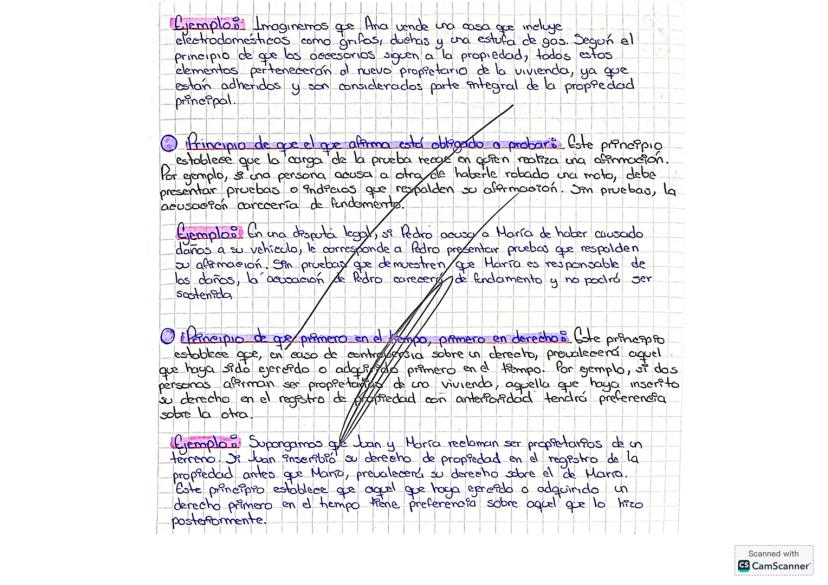 Ejemplo: Imaginemos que Ana vende una casa que incluye
electrodomésticos como grifos, duchas y una estufa de gas. Según el
principio de que los accesorios siguen a la propiedad, todos estos
elementos pertenecerán al nuevo propietario de la vivienda, ya que
están adheridos y son considerados parte integral de la propiedad
principal.
Principio de que el que afirma está obligado a probar: Este principio
establece que la carga de la prueba recae en quien realiza una afirmación.
Por ejemplo, si una persona acusa a otra de haberle robado una moto, debe
presentar pruebas o indicios que respalden su afirmación. Sin pruebas, la
acusación carecería de fundamento.
Ejemplo: En una disputa legal, si Pedro acusa a María de haber causado
daños a su vehículo, le corresponde a Pedro presentar pruebas que respalden
su afirmación. Sin pruebas que demuestren que María es responsable de
los daños, la acusación de Pedro carecerá de fundamento y no podrá ser
sostenida
Principio de que primero en el tiempo, primero en derecho: Este principio
establece que, en caso de controversia sobre un derecho, prevalecerá aquel
que haya sido ejercido o adquirido primero en el tiempo. Por ejemplo, si dos
personas afirman ser propietarias de una vivienda, aquella que haya inscrito
su derecho en el registro de propiedad con anterioridad tendrá preferencia
sobre la otra.
Ejemplo: Supongamos que Juan y María reclaman ser propietarios de un
terreno. Si Juan inscribió su derecho de propiedad en el registro de la
propiedad antes que María, prevalecerá su derecho sobre el de María.
Este principio establece que aquel que haya ejercido o adquirido un
derecho primero en el tiempo tiene preferencia sobre aquel que lo hizo
posteriormente.
Scanned with
CS CamScanner